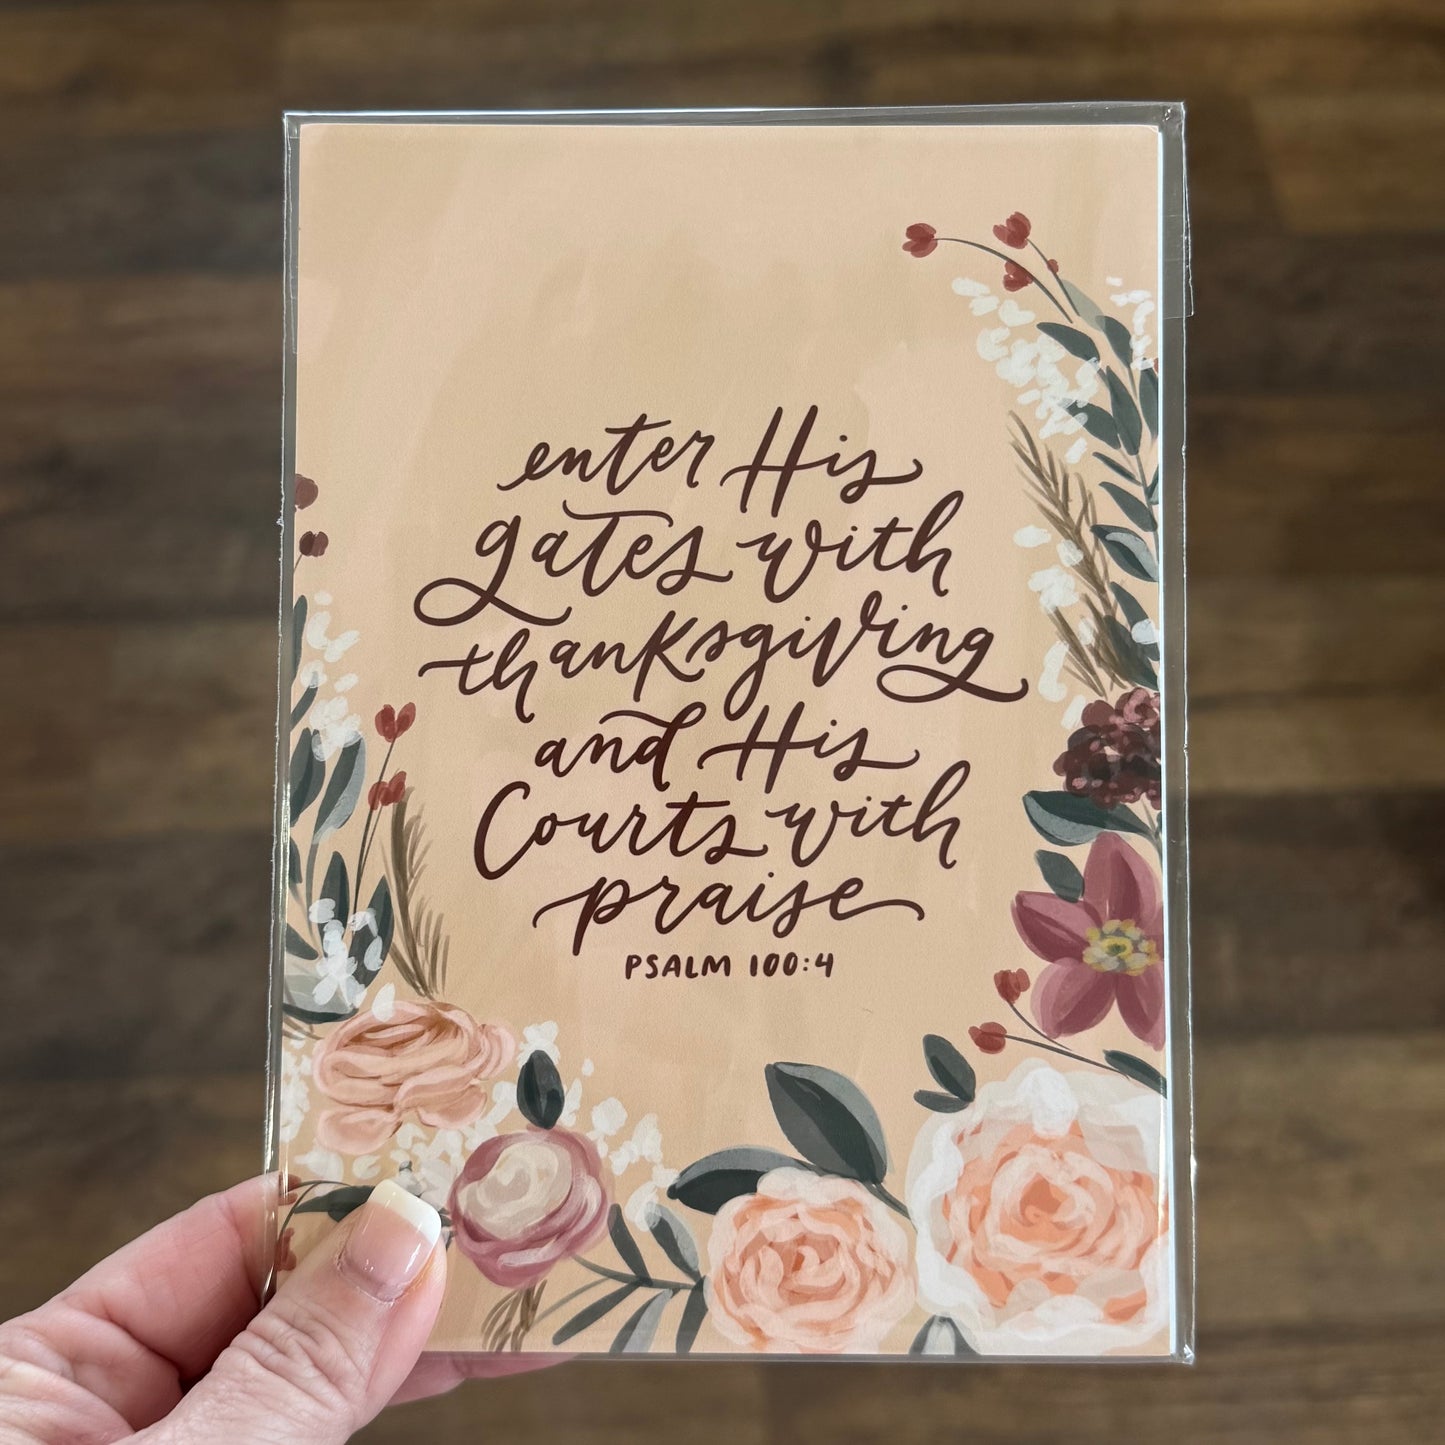 enter His
gates with
thanksgiving
and His
Courts with
praise
PSALM 100:4